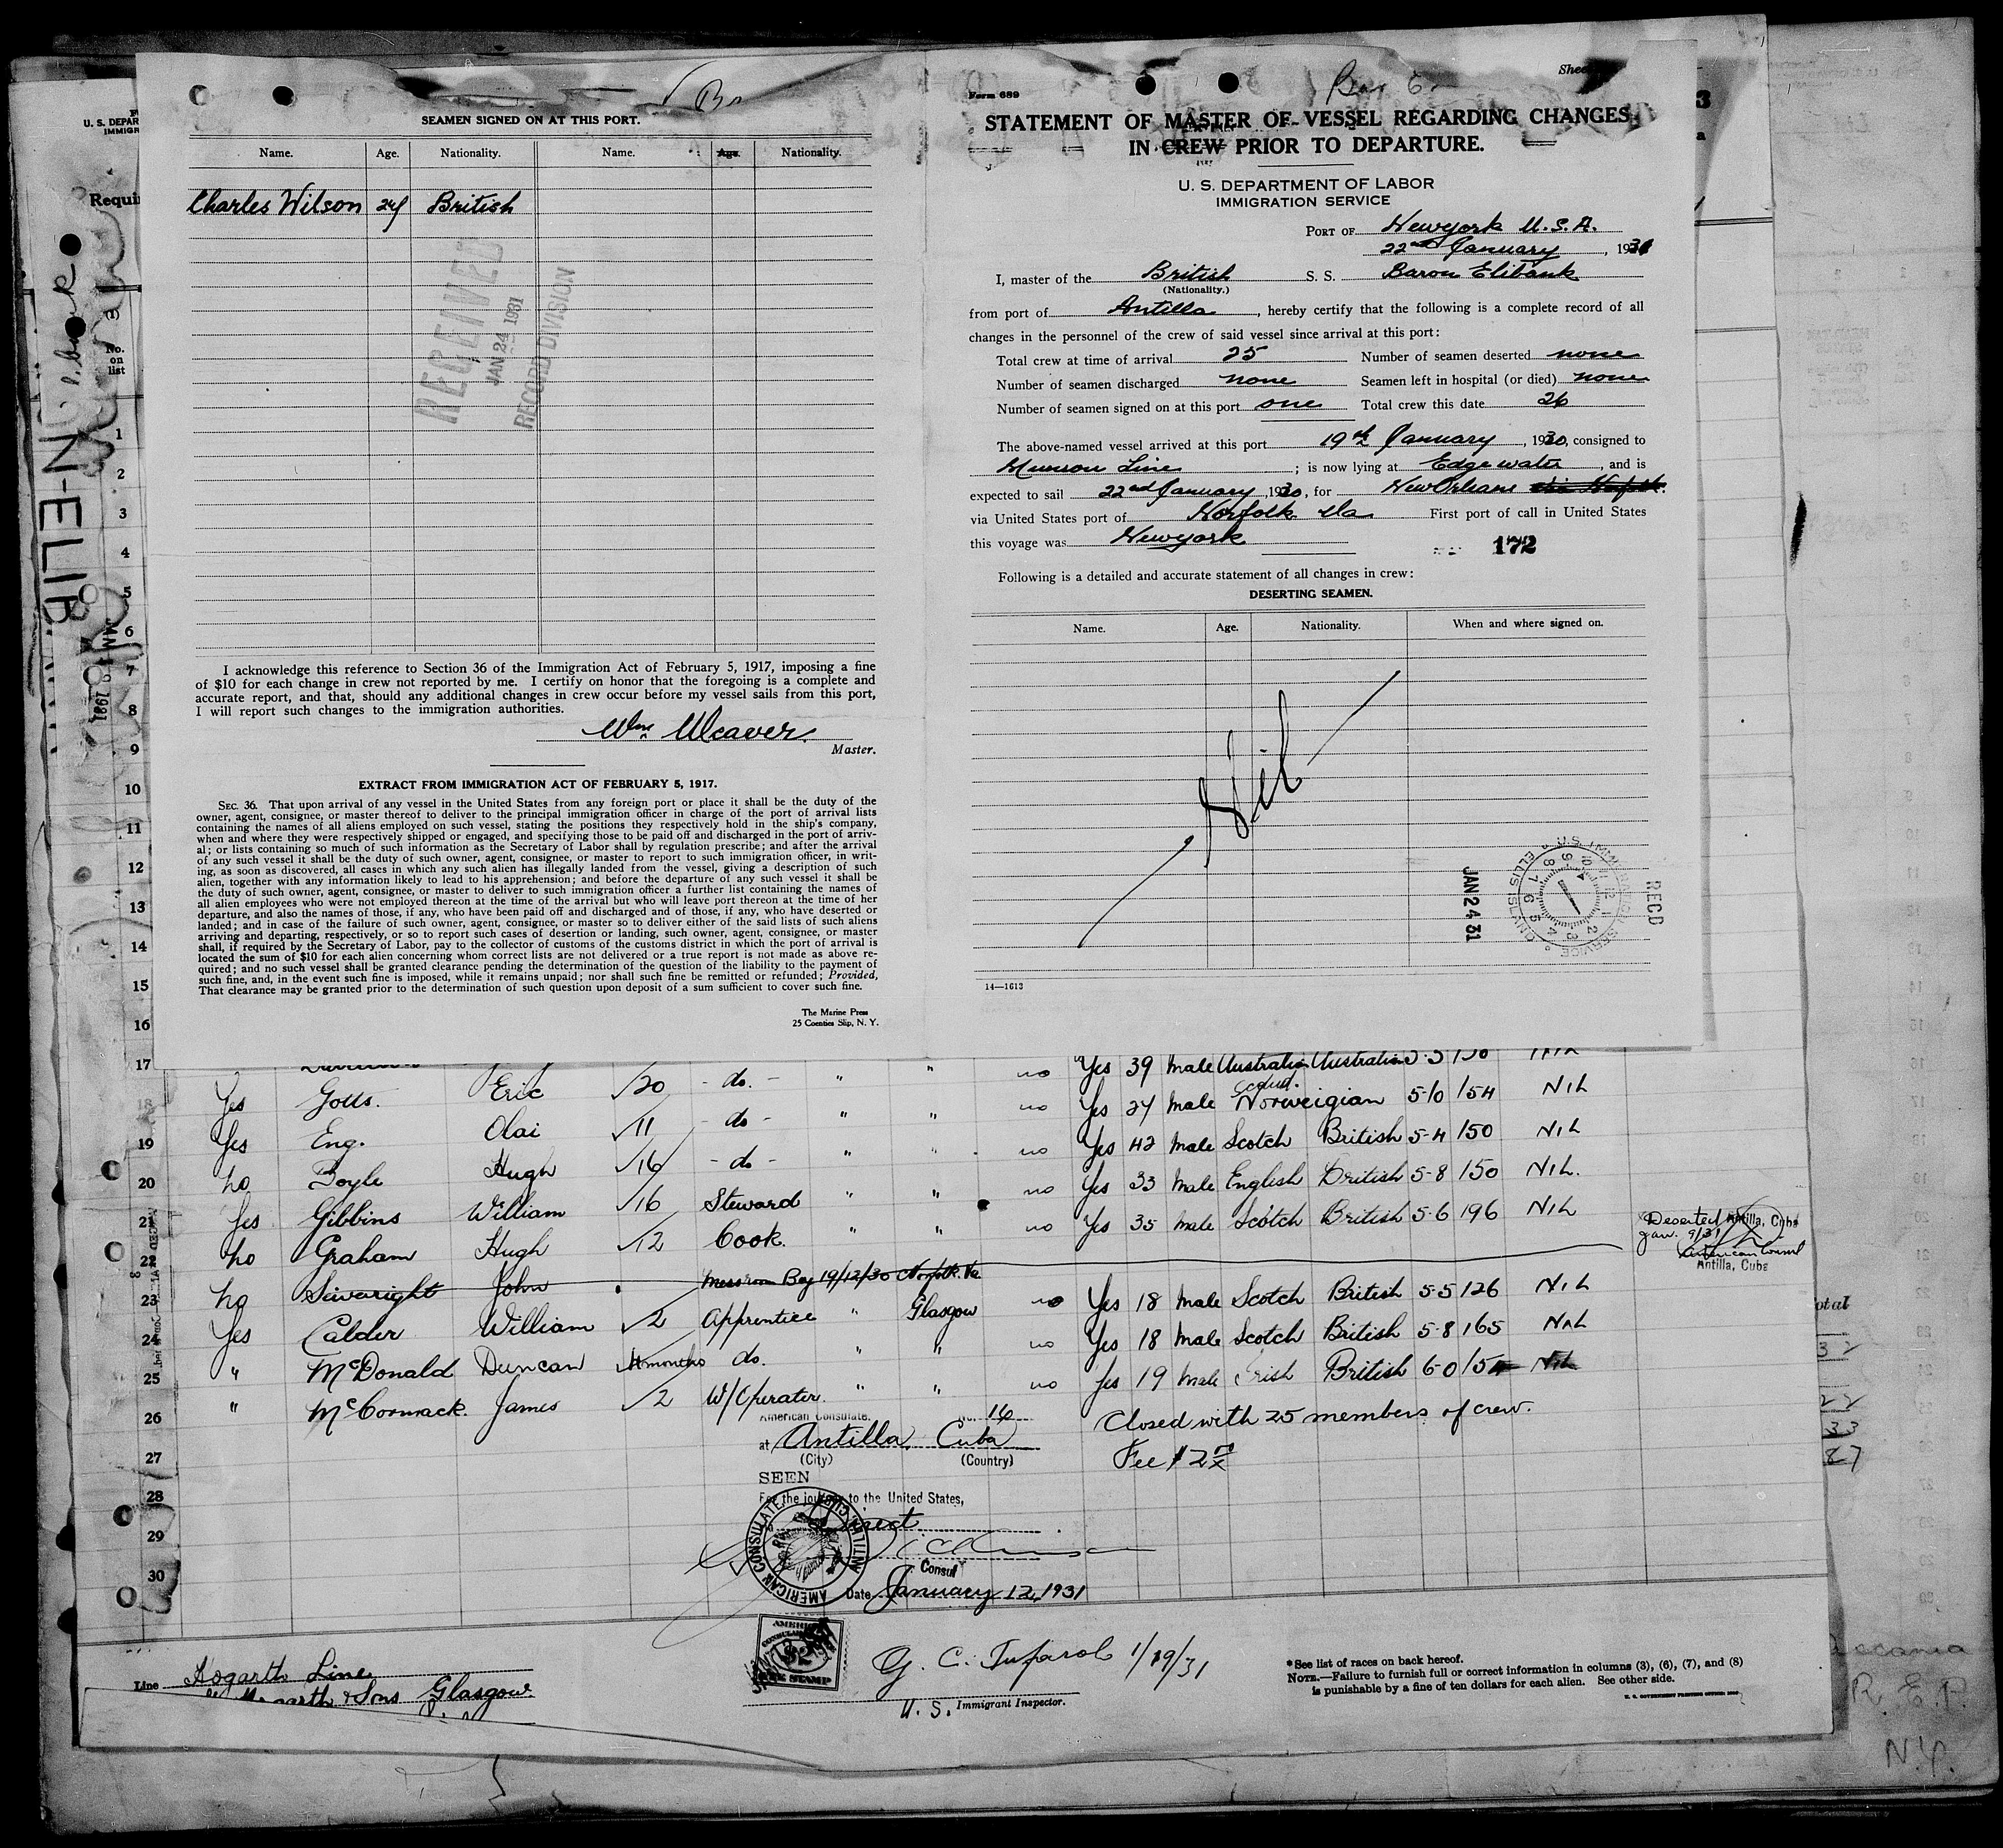 SEAMEN SIGNED ON AT THIS PORT.
Name. Age. Nationality. Name. Age. Nationality.
Charles Wilson 24 British
RECEIVED
JAN 24 1931
RECORD DIVISION
I acknowledge this reference to Section 36 of the Immigration Act of February 5, 1917, imposing a fine
of $10 for each change in crew not reported by me. I certify on honor that the foregoing is a complete and
accurate report, and that, should any additional changes in crew occur before my vessel sails from this port,
I will report such changes to the immigration authorities.
Wm Weaver
Master.
EXTRACT FROM IMMIGRATION ACT OF FEBRUARY 5, 1917.
SEC. 36. That upon arrival of any vessel in the United States from any foreign port or place it shall be the duty of the
owner, agent, consignee, or master thereof to deliver to the principal immigration officer in charge of the port of arrival lists
containing the names of all aliens employed on such vessel, stating the positions they respectively hold in the ship's company,
when and where they were respectively shipped or engaged, and specifying those to be paid off and discharged in the port of arriv-
al; or lists containing so much of such information as the Secretary of Labor shall by regulation prescribe; and after the arrival
of any such vessel it shall be the duty of such owner, agent, consignee, or master to report to such immigration officer, in writ-
ing, as soon as discovered, all cases in which any such alien has illegally landed from the vessel, giving a description of such
alien, together with any information likely to lead to his apprehension; and before the departure of any such vessel it shall be
the duty of such owner, agent, consignee, or master to deliver to such immigration officer a further list containing the names of
all alien employees who were not employed thereon at the time of the arrival but who will leave port thereon at the time of her
departure, and also the names of those, if any, who have been paid off and discharged and of those, if any, who have deserted or
landed; and in case of the failure of such owner, agent, consignee, or master so to deliver either of the said lists of such aliens
arriving and departing, respectively, or so to report such cases of desertion or landing, such owner, agent, consignee, or master
shall, if required by the Secretary of Labor, pay to the collector of customs of the customs district in which the port of arrival is
located the sum of $10 for each alien concerning whom correct lists are not delivered or a true report is not made as above re-
quired; and no such vessel shall be granted clearance pending the determination of the question of the liability to the payment of
such fine, and, in the event such fine is imposed, while it remains unpaid; nor shall such fine be remitted or refunded; Provided,
That clearance may be granted prior to the determination of such question upon deposit of a sum sufficient to cover such fine.
The Marine Press
25 Coenties Slip, N. Y.
Form 689
STATEMENT OF MASTER OF VESSEL REGARDING CHANGES
IN CREW PRIOR TO DEPARTURE.
U. S. DEPARTMENT OF LABOR
IMMIGRATION SERVICE
PORT OF Newyork U.S.A.
22nd January, 1931
I, master of the British S. S. Baron Elibank
(Nationality.)
from port of Antilla, hereby certify that the following is a complete record of all
changes in the personnel of the crew of said vessel since arrival at this port:
Total crew at time of arrival 25 Number of seamen deserted none
Number of seamen discharged none Seamen left in hospital (or died) none
Number of seamen signed on at this port one Total crew this date 26
The above-named vessel arrived at this port 19th January, 1930, consigned to
Munson Line; is now lying at Edgewater, and is
expected to sail 22nd January, 1930, for New Orleans via Norfolk.
via United States port of Norfolk Va First port of call in United States
this voyage was Newyork
172
Following is a detailed and accurate statement of all changes in crew:
DESERTING SEAMEN.
Name. Age. Nationality. When and where signed on.
Nil
JAN 24 31
REC'D
14—1613
U. S. DEPAR
IMMIGR
Requi
(1)
No.
on
list
N-ELIB
1
2
3
4
5
6
7
8
9
10
11
12
13
14
15
16
17 no Yes 39 male Australian Australian 5-5 150 NIL
18 Yes Gotts. Eric 20 - do. - " " no Yes 24 male Scand. Norweigian 5-10 154 NIL
19 Yes Eng. Olai 11 - do - " " no Yes 42 male Scotch British 5-4 150 NIL
20 no Boyle Hugh 16 - do - " " no Yes 33 male English British 5-8 150 NIL.
21 Yes Gibbins William 16 Steward " " no Yes 35 male Scotch British 5-6 196 NIL
22 no Graham Hugh 12 Cook. " "
23 no Sivwright John Messroom Boy 19/12/30 Norfolk. Va
Deserted Antilla, Cuba
Jan. 9/31
American Consul
Antilla, Cuba
24 Yes Calder William 2 Apprentice " Glasgow no Yes 18 male Scotch British 5-5 126 NIL
25 " McDonald Duncan months do. " " no Yes 18 male Scotch British 5-8 165 NIL
26 " McCormack. James 2 W/Operater. " " no Yes 19 male Irish British 6-0 154 NIL
27
28
29
30
American Consulate. No. 16
at Antilla, Cuba
(City) (Country)
SEEN
For the journey to the United States,
Direct
Consul
Date January 12, 1931
AMERICAN CONSULATE
Closed with 25 members of crew.
Fee $2
$2
FEE STAMP
Line Hogarth Line
Hogarth & Sons Glasgow
1/19/31
U. S. Immigrant Inspector.
*See list of races on back hereof.
NOTE.—Failure to furnish full or correct information in columns (3), (6), (7), and (8)
is punishable by a fine of ten dollars for each alien. See other side.
otal
33
87
R. E. P.
N.Y.